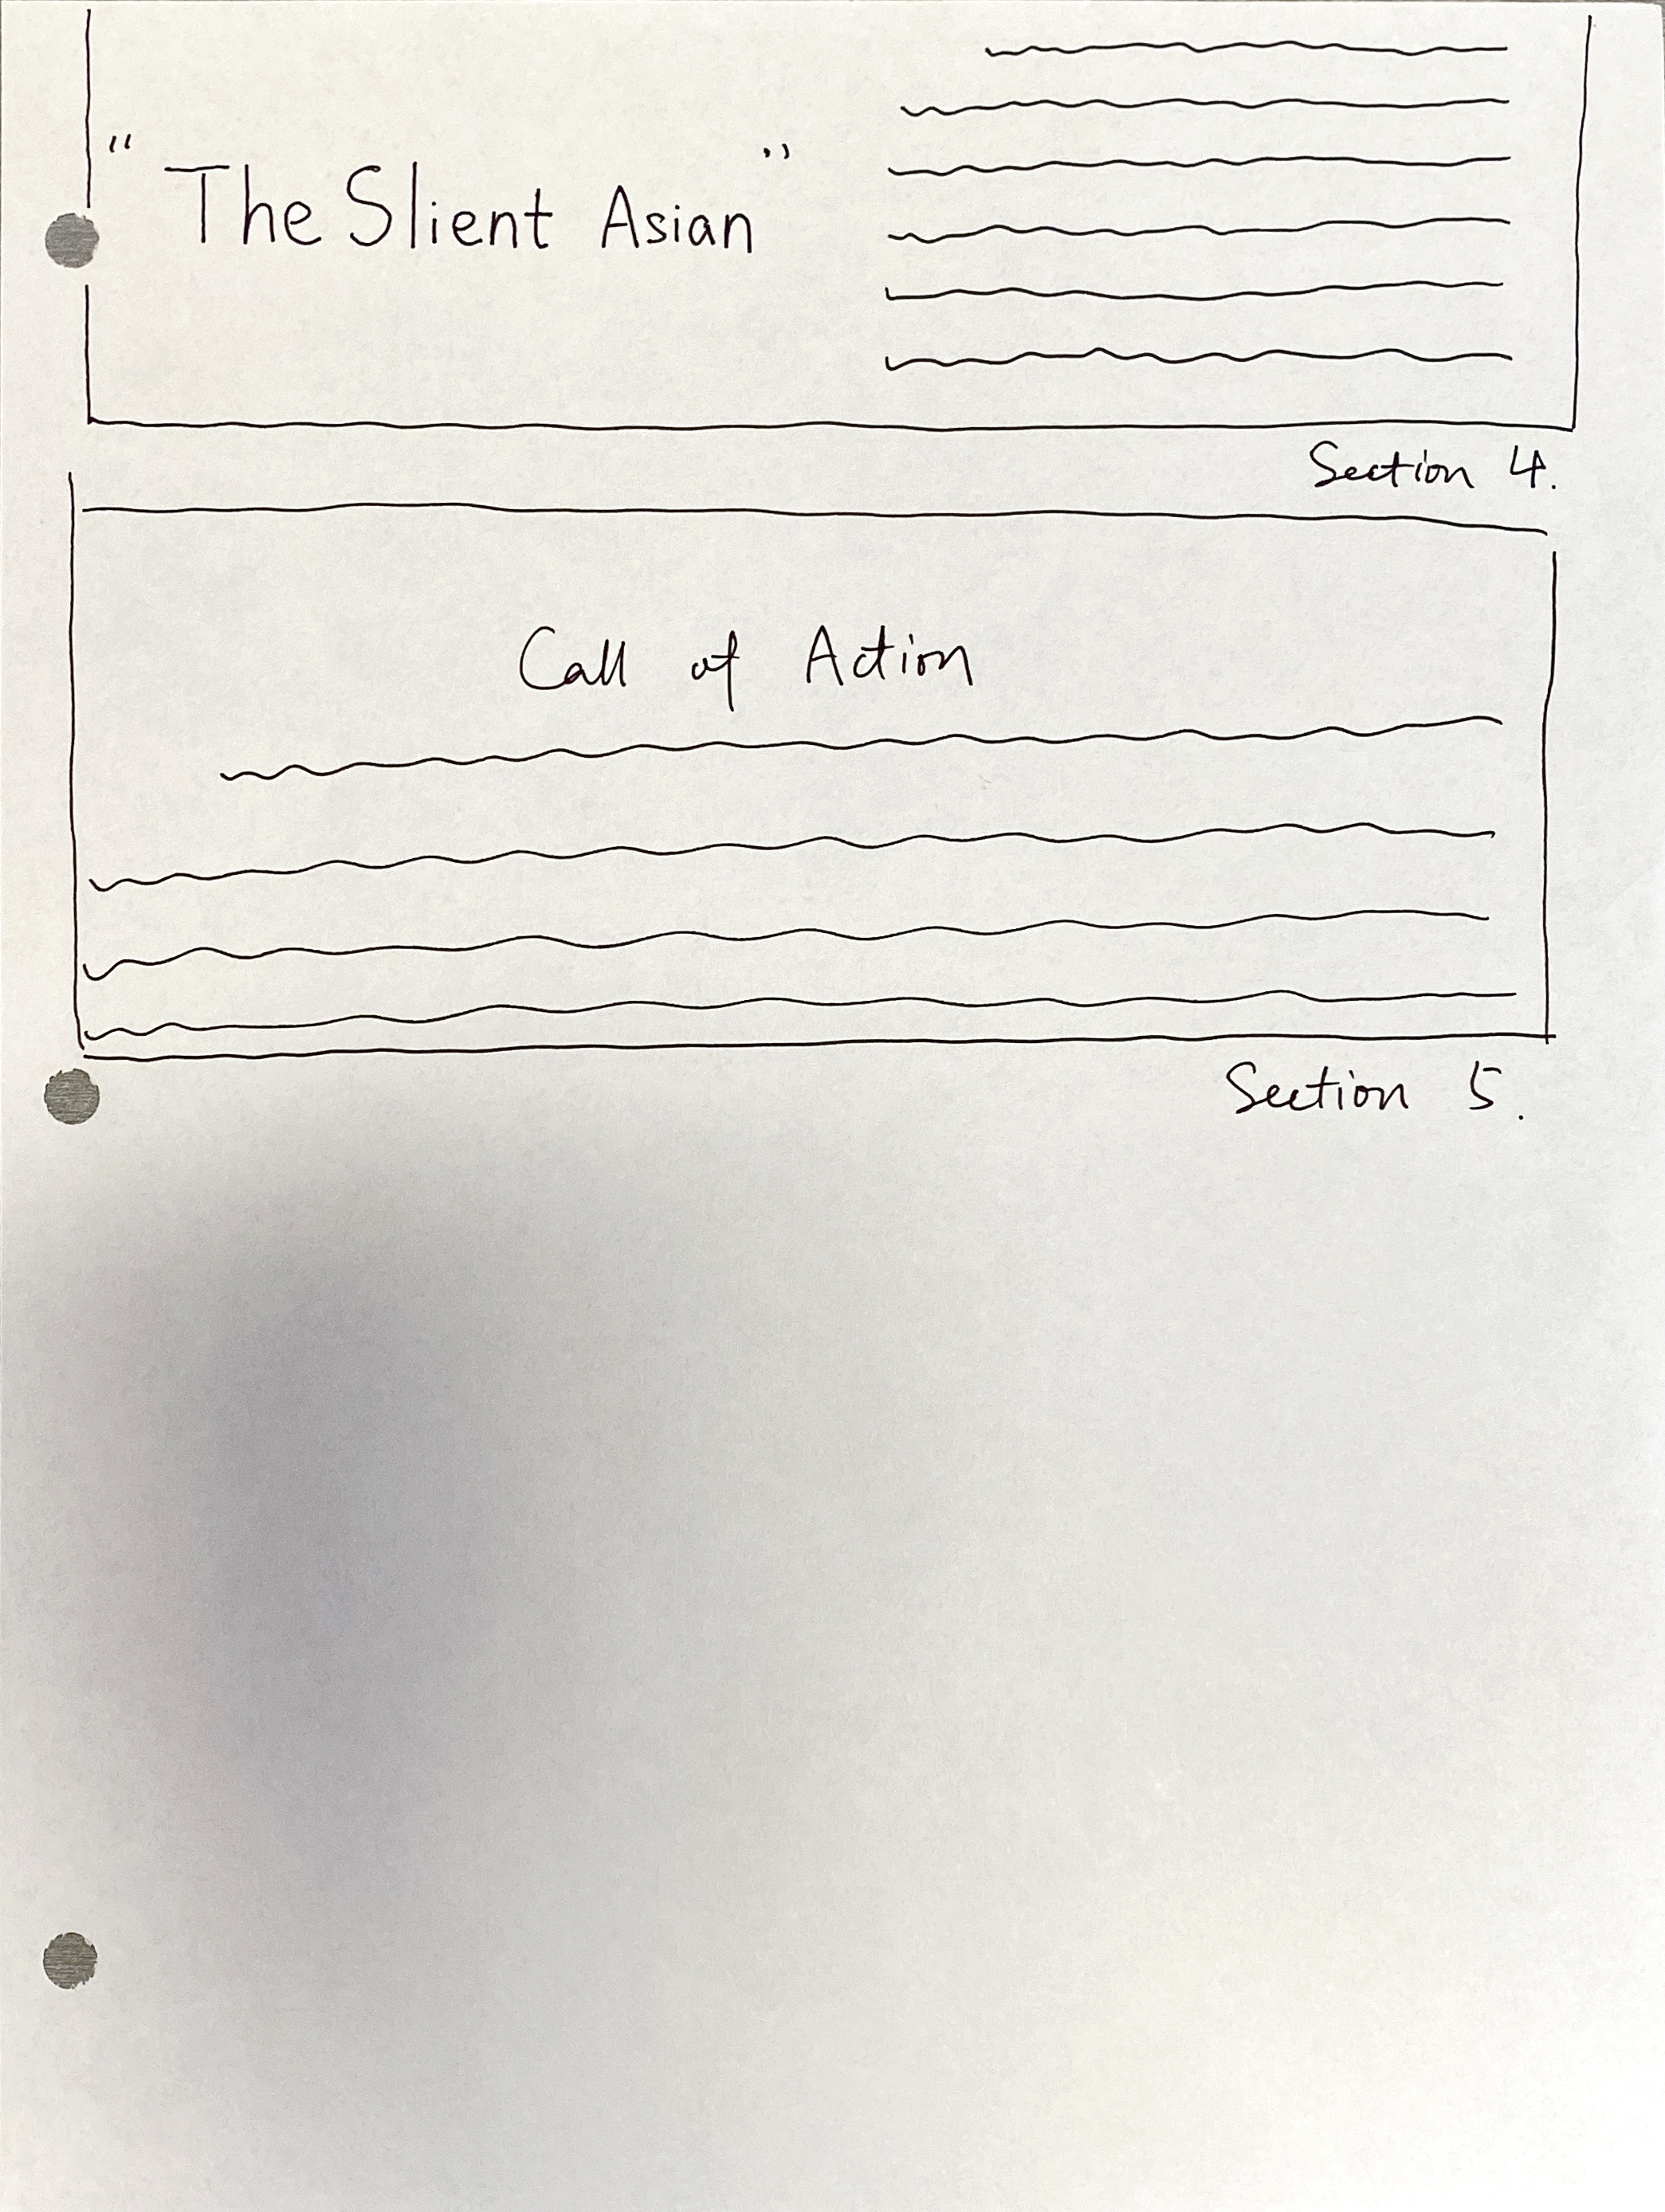 "The Slient Asian"
Section 4.
Call of Action
Section 5.